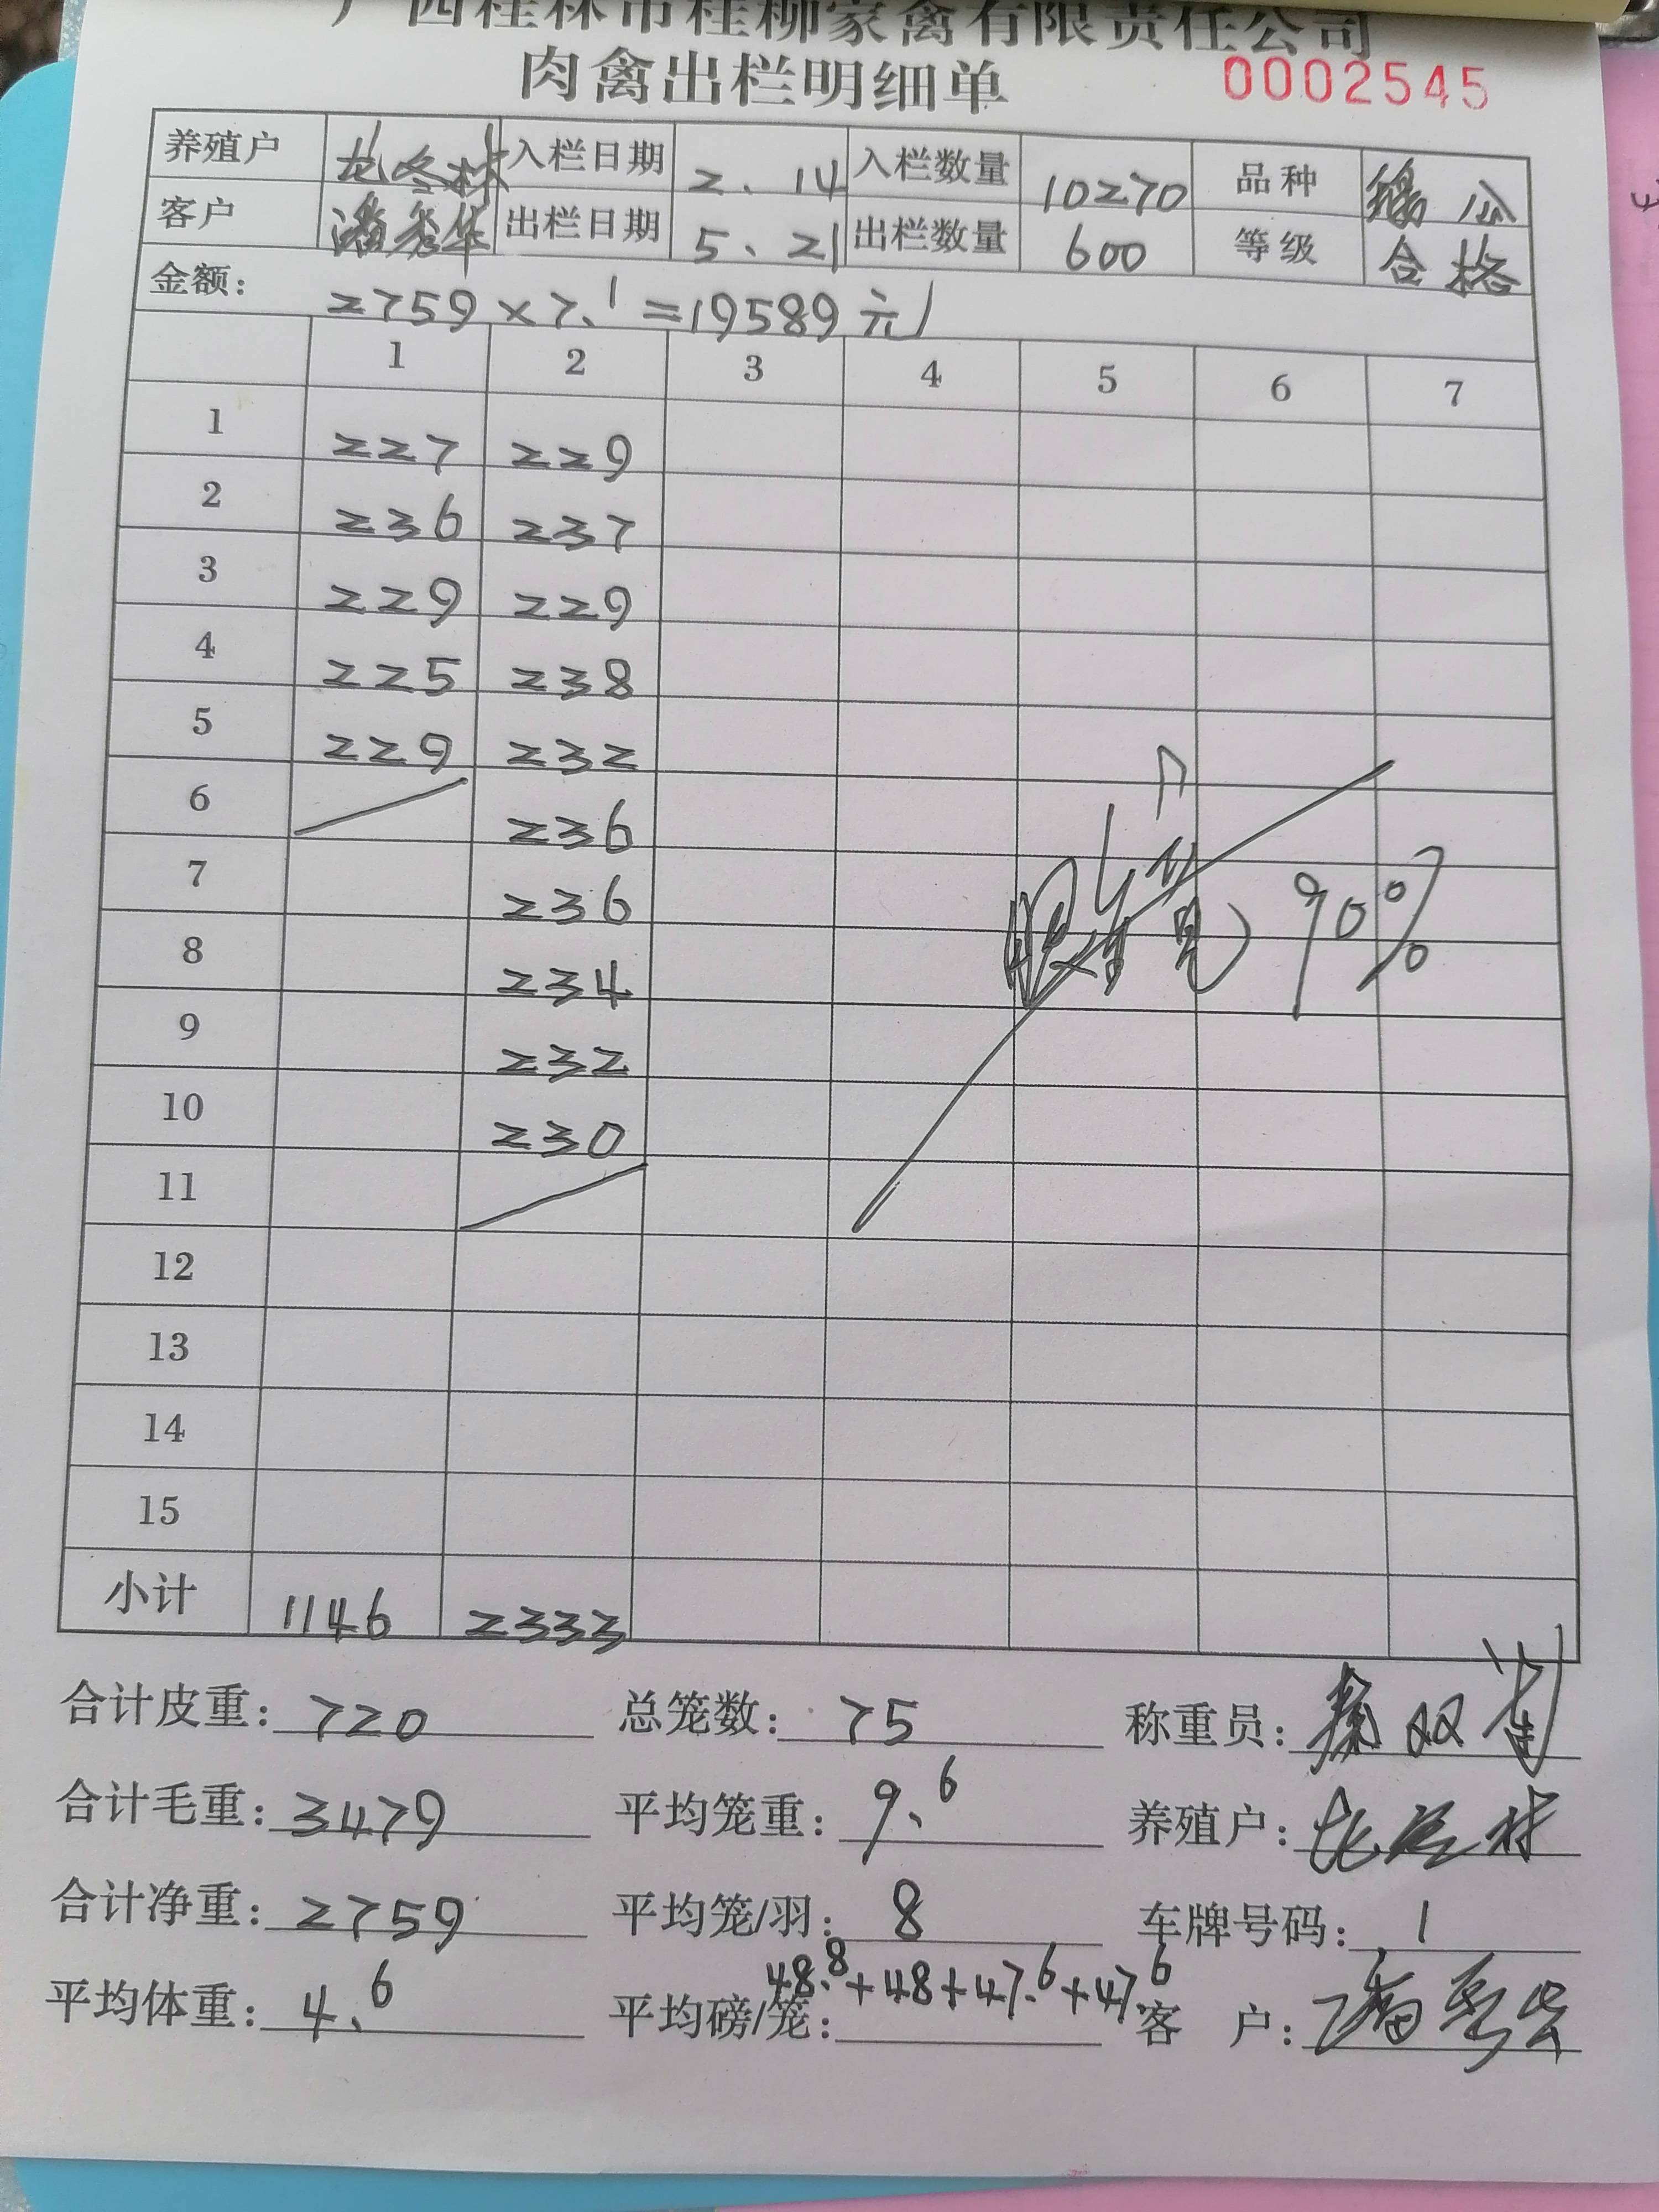 广西桂林市桂柳家禽有限责任公司
肉禽出栏明细单 0002545
养殖户 龙冬林 入栏日期 2、14 入栏数量 10270 品种
客户 潘秀华 出栏日期 5、21 出栏数量 600 等级 合格
金额: 2759×7.1=19589元
1 2 3 4 5 6 7
1 227 229
2 236 237
3 229 229
4 225 238
5 229 232
6 236
7 236
8 234 90%
9 232
10 230
11
12
13
14
15
小计 1146 2333
合计皮重: 720 总笼数: 75 称重员:
合计毛重: 3479 平均笼重: 9.6 养殖户: 龙冬林
合计净重: 2759 平均笼/羽: 8 车牌号码: 1
平均体重: 4.6 平均磅/笼: 48.8+48+47.6+47.6 客 户: 潘秀华